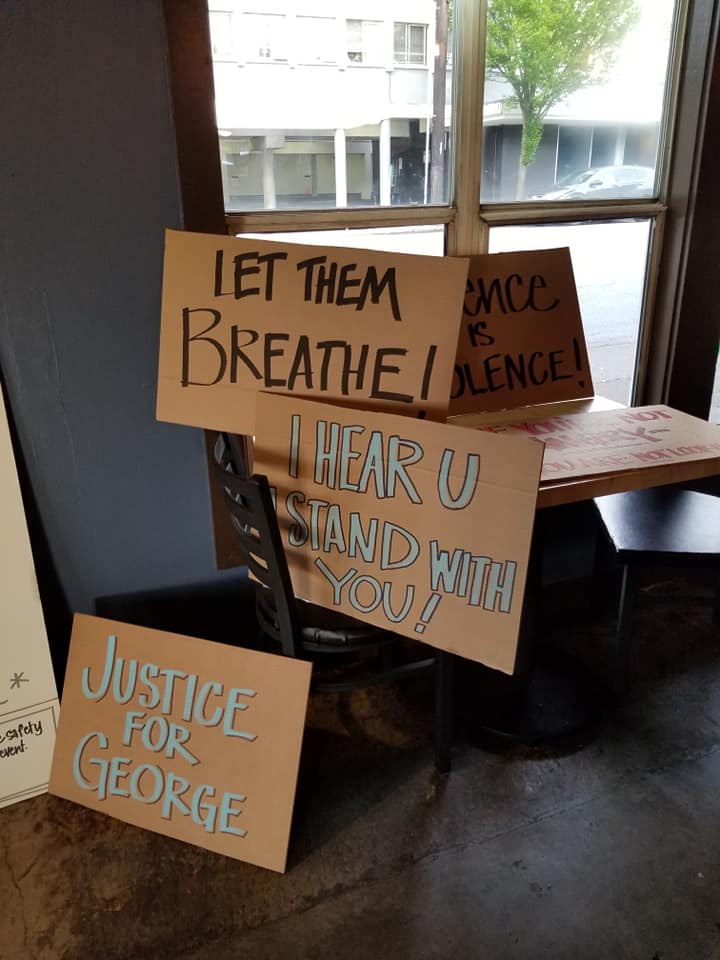 LET THEM
BREATHE!
ence
IS
OLENCE!
I HEAR U
I STAND WITH
YOU!
NOT
ARE NOT
JUSTICE
FOR
GEORGE
*
safety
event.